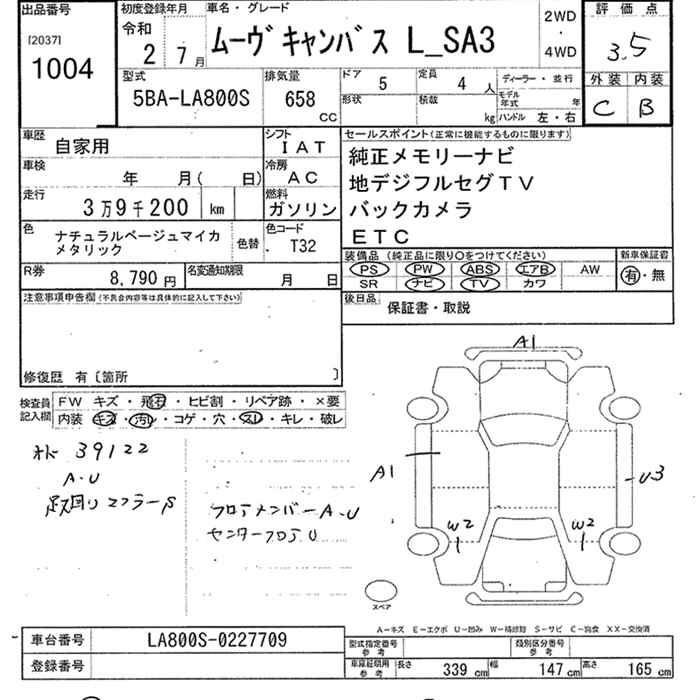 出品番号
[2037]
1004
初度登録年月
令和
2 7月
車名・グレード
ムーヴキャンバス L_SA3
2WD
・
4WD
評価点
3.5
外装 内装
C B
型式
5BA-LA800S
排気量
658
CC
ドア 5
定員 4 人
形状
積載 kg
ディーラー・並行
モデル年式 年
ハンドル 左・右
車歴 自家用
シフト
IAT
車検 年 月( 日)
冷房
AC
走行 3万9千200 km
燃料
ガソリン
色 ナチュラルベージュマイカ
メタリック
色替
色コード
T32
R券 8,790円
名変通知期限 月 日
セールスポイント(正常に機能するものに限ります)
純正メモリーナビ
地デジフルセグTV
バックカメラ
ETC
装備品(純正品に限り○をつけてください)
新車保証書
PS PW ABS エアB AW
有・無
SR ナビ TV カワ
後日品 保証書・取説
注意事項申告欄(不具合内容等は具体的に記入して下さい)
修復歴 有〔箇所 〕
検査員
記入欄
FW キズ・飛石・ヒビ割・リペア跡・×要
内装 キズ・汚れ・コゲ・穴・スレ・キレ・破レ
39122
A・U
足回りマフラーS
フロアメンバーA・U
センターフロアU
A1
A1
U3
W2
W2
スペア
A−キズ E−エクボ U−凹み W−補修跡 S−サビ C−腐食 XX−交換済
車台番号 LA800S-0227709
登録番号
型式指定番号
参考
類別区分番号
参考
車庫証明用
参考
長さ 339 cm
幅 147 cm
高さ 165 cm